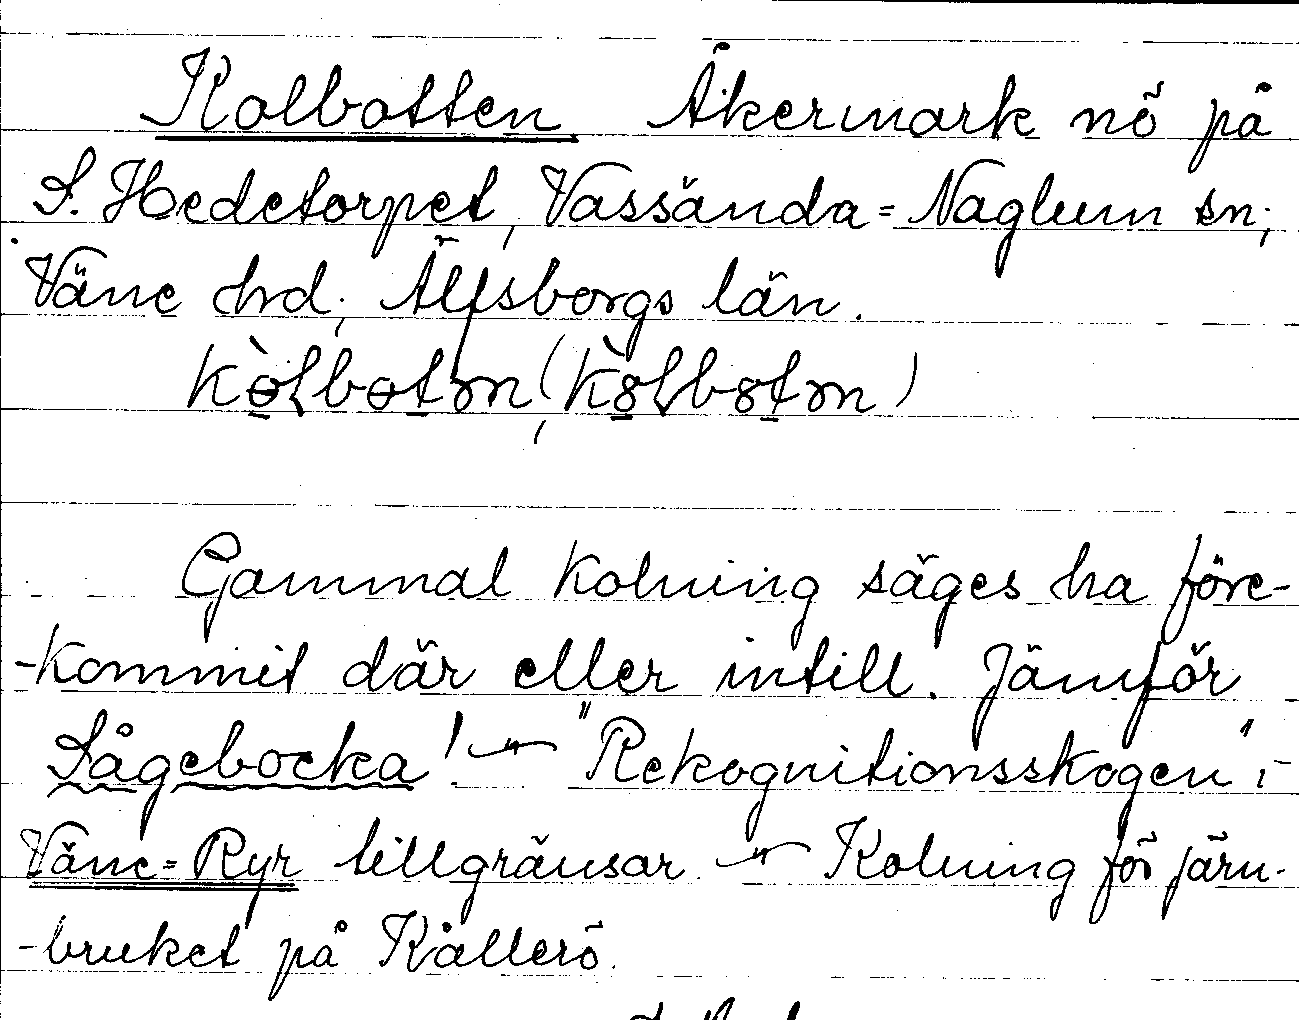 Kolbotten Åkermark nö på
S. Hedetorpet, Vassända=Naglum sn;
Väne hrd; Älfsborgs län.
Gammal kolning säges ha före-
-kommit där eller intill. Jämför
Sågebocka! — "Rekognitionsskogen" i
Väne=Ryr tillgränsar — Kolning för järn-
-bruket på Kållerö.